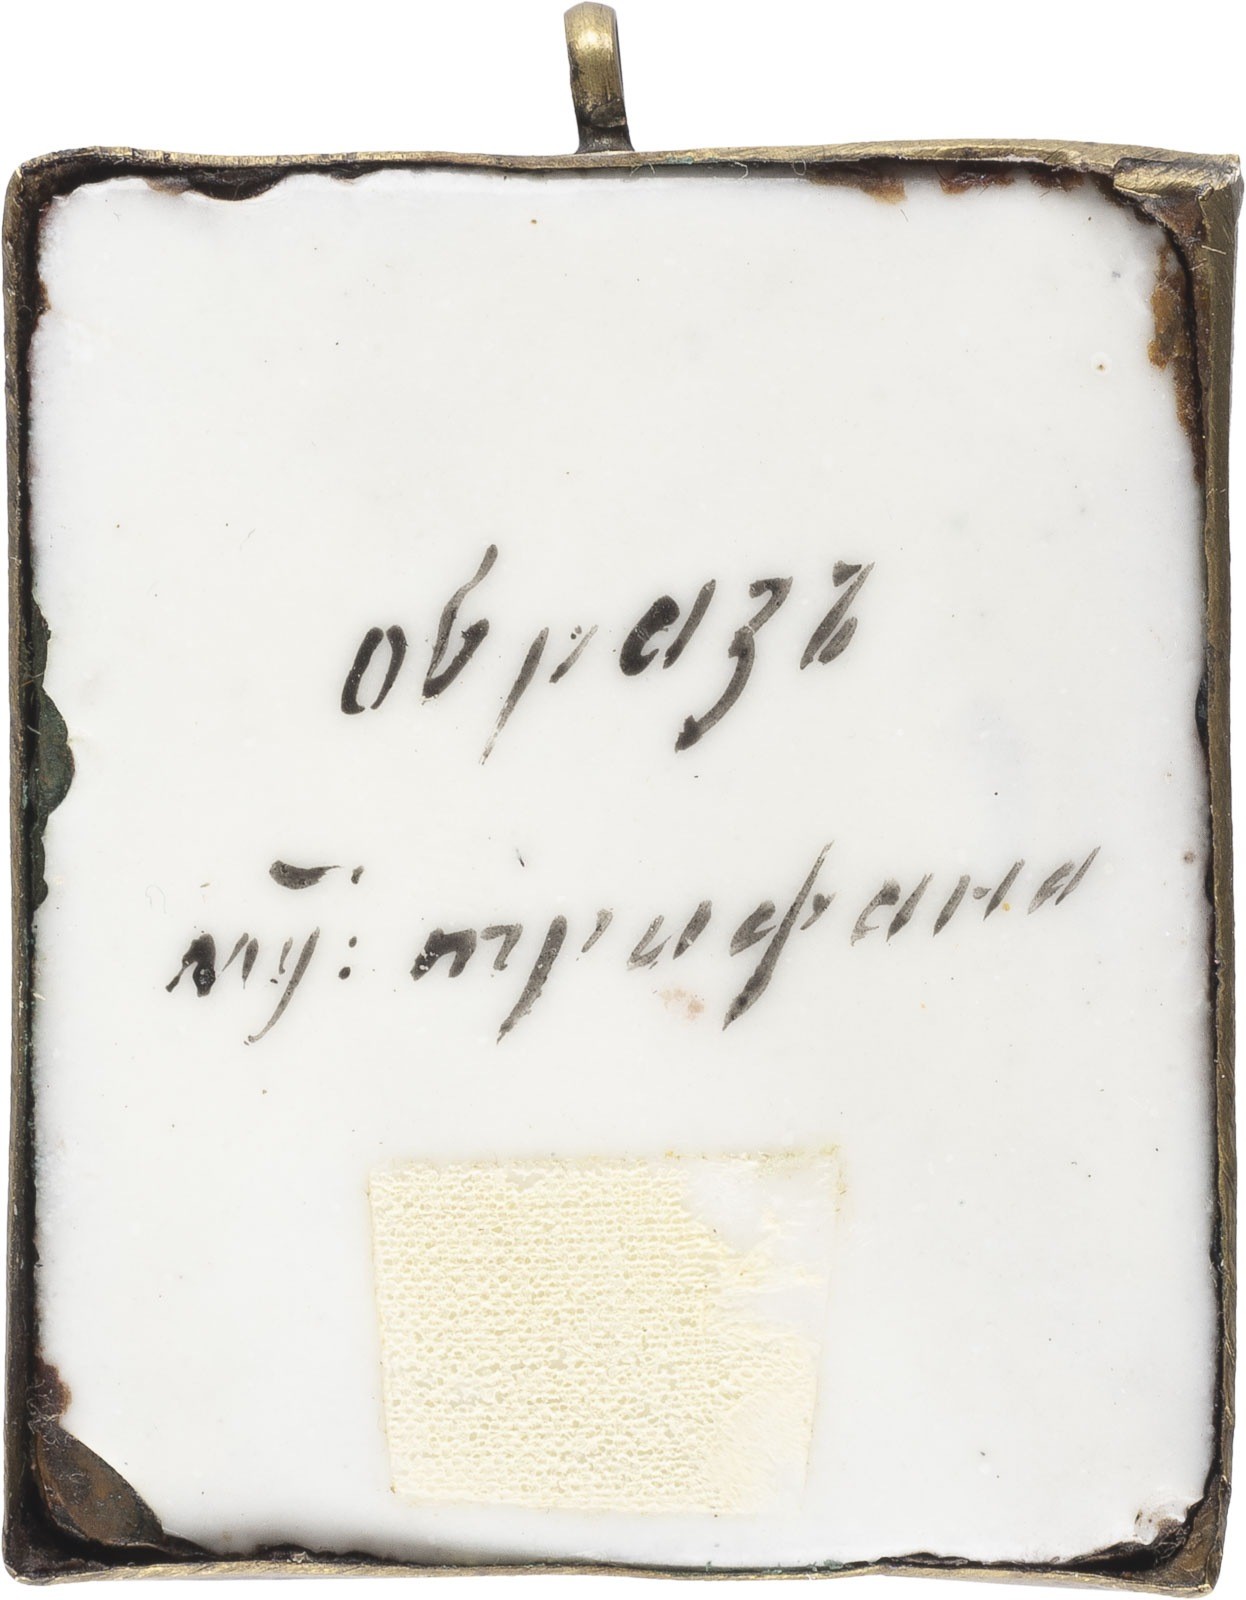 образъ
му̃: трифана